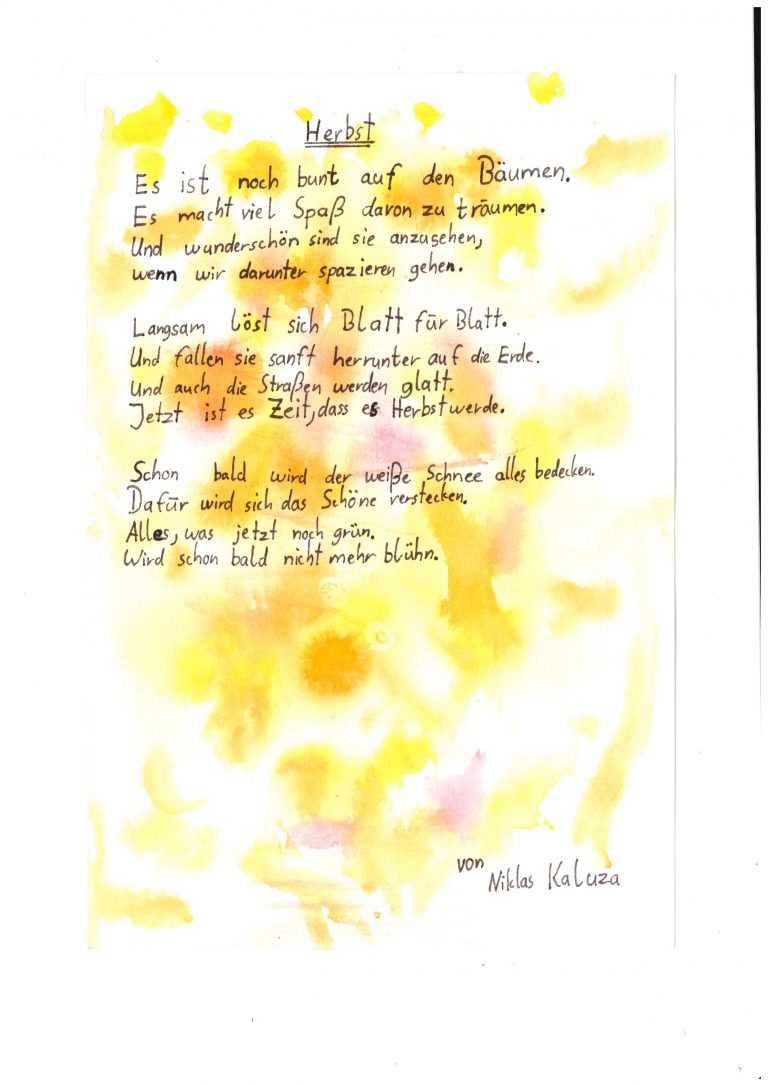 Herbst
Es ist noch bunt auf den Bäumen.
Es macht viel Spaß davon zu träumen.
Und wunderschön sind sie anzusehen,
wenn wir darunter spazieren gehen.
Langsam löst sich Blatt für Blatt.
Und fallen sie sanft herrunter auf die Erde.
Und auch die Straßen werden glatt.
Jetzt ist es Zeit, dass es Herbst werde.
Schon bald wird der weiße Schnee alles bedecken.
Dafür wird sich das Schöne verstecken.
Alles, was jetzt noch grün.
Wird schon bald nicht mehr blühn.
von
Niklas Kaluza